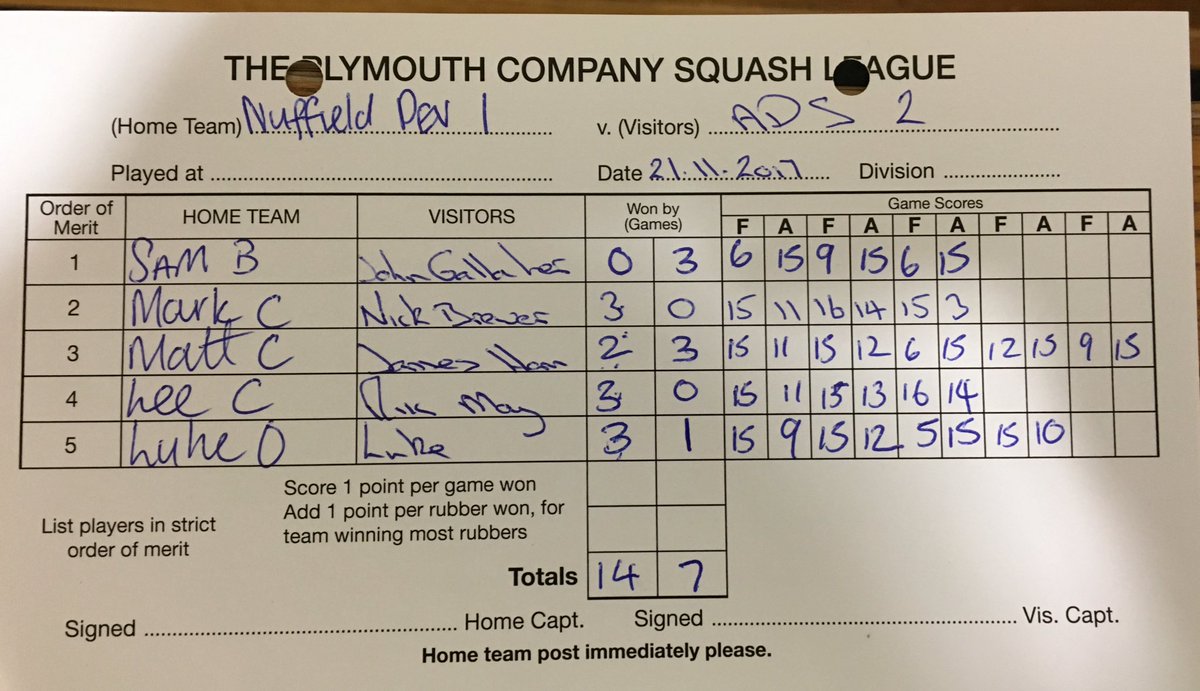 THE PLYMOUTH COMPANY SQUASH LEAGUE
(Home Team) Nuffield Dev 1 v. (Visitors) ADS 2
Played at Date 21.11.2017 Division
Order of Merit HOME TEAM VISITORS Won by (Games) Game Scores
F A F A F A F A F A
1 SAM B John Gallaher 0 3 6 15 9 15 6 15
2 Mark C Nick Brewer 3 0 15 11 16 14 15 3
3 Matt C James Ham 2 3 15 11 15 12 6 15 12 15 9 15
4 Lee C May 3 0 15 11 15 13 16 14
5 Luke O Luke 3 1 15 9 15 12 5 15 15 10
Score 1 point per game won
Add 1 point per rubber won, for
team winning most rubbers
List players in strict
order of merit
Totals 14 7
Signed Home Capt. Signed Vis. Capt.
Home team post immediately please.